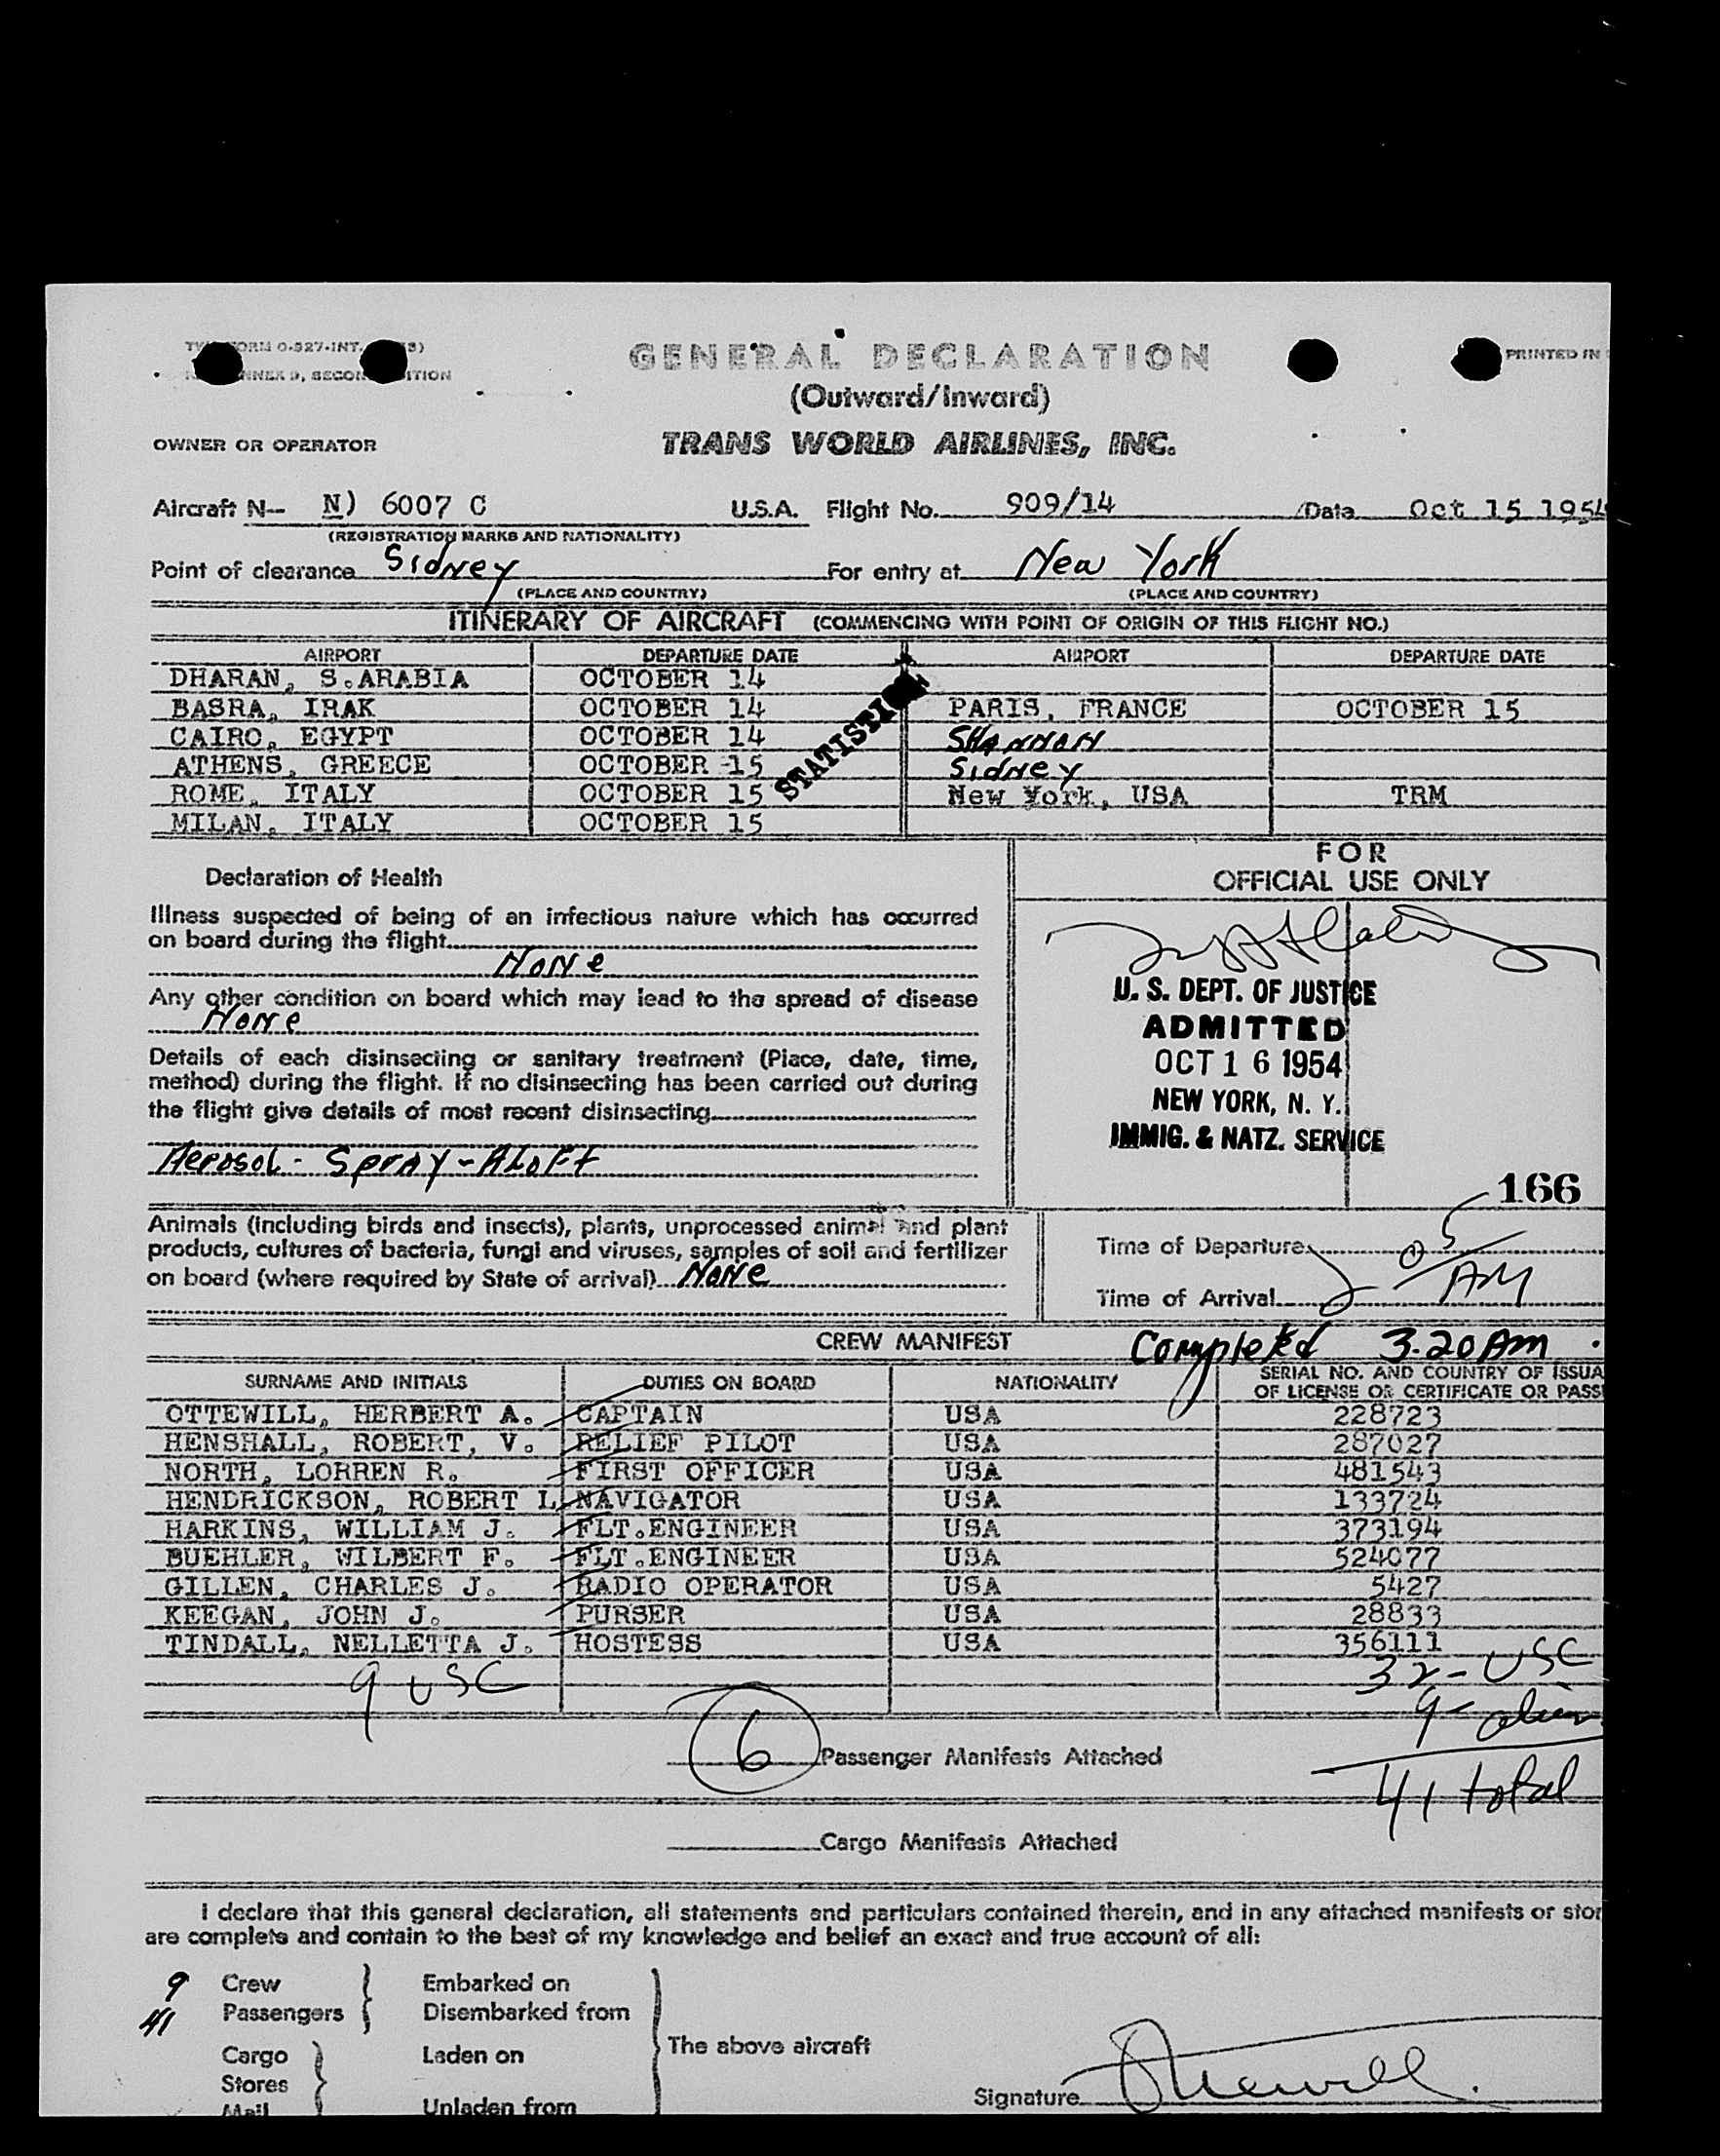 GENERAL DECLARATION
(Outward/Inward)
PRINTED IN
OWNER OR OPERATOR TRANS WORLD AIRLINES, INC.
Aircraft N-- N) 6007 C U.S.A. Flight No. 909/14 Date Oct 15 1954
(REGISTRATION MARKS AND NATIONALITY)
Point of clearance Sidney For entry at New York
(PLACE AND COUNTRY) (PLACE AND COUNTRY)
ITINERARY OF AIRCRAFT (COMMENCING WITH POINT OF ORIGIN OF THIS FLIGHT NO.)
AIRPORT DEPARTURE DATE AIRPORT DEPARTURE DATE
DHARAN, S.ARABIA OCTOBER 14
BASRA, IRAK OCTOBER 14 PARIS, FRANCE OCTOBER 15
CAIRO, EGYPT OCTOBER 14 SHANNON
ATHENS, GREECE OCTOBER 15 Sidney
ROME, ITALY OCTOBER 15 New York, USA TRM
MILAN, ITALY OCTOBER 15
Declaration of Health
Illness suspected of being of an infectious nature which has occurred
on board during the flight
None
Any other condition on board which may lead to the spread of disease
None
Details of each disinsecting or sanitary treatment (Place, date, time,
method) during the flight. If no disinsecting has been carried out during
the flight give details of most recent disinsecting
Aerosol - Spray - Aloft
FOR
OFFICIAL USE ONLY
U. S. DEPT. OF JUSTICE
ADMITTED
OCT 16 1954
NEW YORK, N. Y.
IMMIG. & NATZ. SERVICE
166
Animals (including birds and insects), plants, unprocessed animal and plant
products, cultures of bacteria, fungi and viruses, samples of soil and fertilizer
on board (where required by State of arrival) None
Time of Departure
Time of Arrival 2 05 AM
CREW MANIFEST Completed 3.20 Am
SURNAME AND INITIALS DUTIES ON BOARD NATIONALITY SERIAL NO. AND COUNTRY OF ISSUA
OF LICENSE OR CERTIFICATE OR PASS
OTTEWILL, HERBERT A. CAPTAIN USA 228723
HENSHALL, ROBERT, V. RELIEF PILOT USA 287027
NORTH, LORREN R. FIRST OFFICER USA 481543
HENDRICKSON, ROBERT L NAVIGATOR USA 133724
HARKINS, WILLIAM J. FLT.ENGINEER USA 373194
BUEHLER, WILBERT F. FLT.ENGINEER USA 524077
GILLEN, CHARLES J. RADIO OPERATOR USA 5427
KEEGAN, JOHN J. PURSER USA 28833
TINDALL, NELLETTA J. HOSTESS USA 356111
9 USC 32 - USC
9 - alien
6 Passenger Manifests Attached
41 total
Cargo Manifests Attached
I declare that this general declaration, all statements and particulars contained therein, and in any attached manifests or stor
are complete and contain to the best of my knowledge and belief an exact and true account of all:
9 Crew Embarked on
41 Passengers Disembarked from
The above aircraft
Cargo Laden on
Stores
Signature
Mail Unladen from